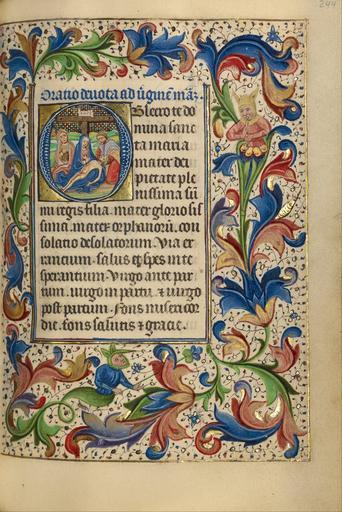 244
Oratio deuota ad ùginẽ mãz.
Obsecro te do
mina sanc
ta maria
mater dei
pietate ple
nissima sũ
mi regis filia. mater glorio sis
sima. mater orphanorũ. con
solatio desolatorum. Via er
rancium. salus et spes in te
sperantium. Virgo ante par
tum. uirgo in partu. et uirgo
post partum. Fons misericor
die. fons salutis et gracie.